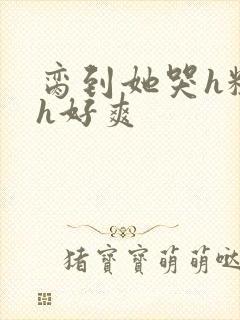 脔到她哭h
h好爽
猪寶寶萌萌哒